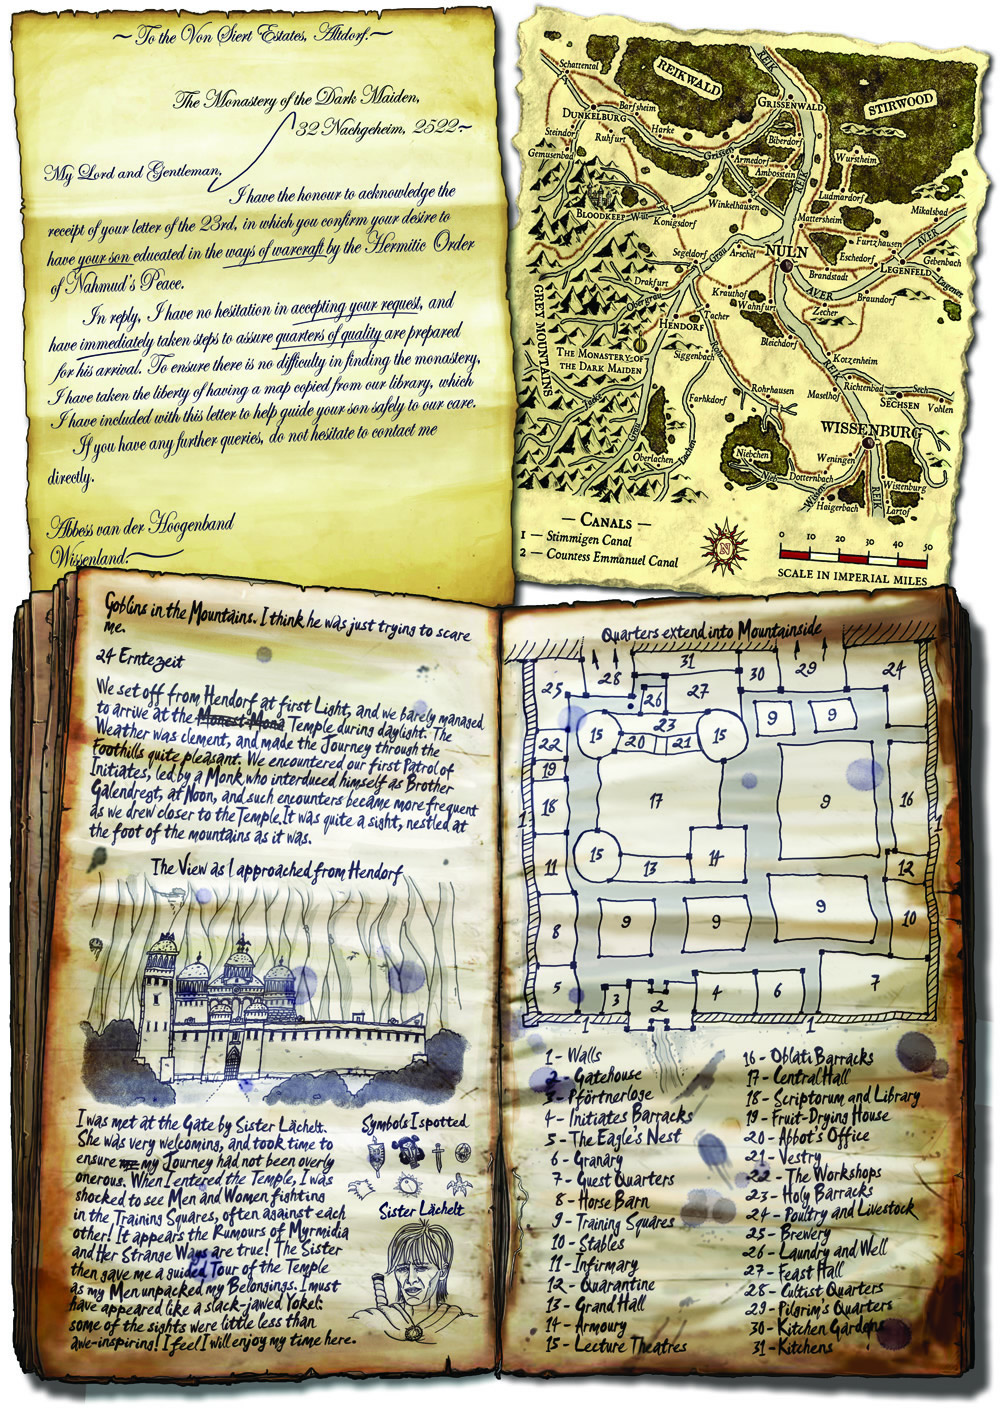 ~To the Von Siert Estates, Altdorf.~
The Monastery of the Dark Maiden,
32 Nachgeheim, 2522~
My Lord and Gentleman,
I have the honour to acknowledge the
receipt of your letter of the 23rd, in which you confirm your desire to
have your son educated in the ways of warcraft by the Hermitic Order
of Nahmud's Peace.
In reply, I have no hesitation in accepting your request, and
have immediately taken steps to assure quarters of quality are prepared
for his arrival. To ensure there is no difficulty in finding the monastery,
I have taken the liberty of having a map copied from our library, which
I have included with this letter to help guide your son safely to our care.
If you have any further queries, do not hesitate to contact me
directly.
Abbess van der Hoogenband
Wissenland.
REIK
REIKWALD
STIRWOOD
Schattental
GRISSENWALD
DUNKELBURG
Barfsheim
Harke
Ruhfurt
Steindorf
Gemusenbad
Biberdorf
Grissen
Armedorf
Ambosstein
Wurstheim
REIK
Ludmardorf
Winkelhausen
BLOODKEEP
Wilt
Konigsdorf
Mattersheim
Mikalsbad
AVER
Furtzhausen
NULN
Segeldorf
Grau
Arschel
Eschedorf
Gebenbach
LEGENFELD
Brandstadt
Lugener
Drakfurt
Obergrau
Krauthof
Wahnfurt
AVER
Braundorf
Zecher
GREY MOUNTAINS
Tacher
HENDORF
Bleichdorf
THE MONASTERY OF
THE DARK MAIDEN
Siggenbach
Rohr
Kotzenheim
Rohrhausen
Maselhof
Richtenbad
Sech
SECHSEN
Vohlen
Farhkdorf
WISSENBURG
Oberlachen
Niebchen
Weningen
Dotternbach
REIK
Wistenburg
Haigerbach
Lartof
— CANALS —
1 — Stimmigen Canal
2 — Countess Emmanuel Canal
N
0 10 20 30 40 50
SCALE IN IMPERIAL MILES
Goblins in the Mountains. I think he was just trying to scare
me.
24 Erntezeit
We set off from Hendorf at first Light, and we barely managed
to arrive at the Monest Mona Temple during daylight. The
Weather was clement, and made the Journey through the
Foothills quite pleasant. We encountered our first Patrol of
Initiates, led by a Monk who interduced himself as Brother
Galendregt, at Noon, and such encounters became more frequent
as we drew closer to the Temple. It was quite a sight, nestled at
the foot of the mountains as it was.
The View as I approached from Hendorf
I was met at the Gate by Sister Lächelt.
She was very welcoming, and took time to
ensure my Journey had not been overly
onerous. When I entered the Temple, I was
shocked to see Men and Women fighting
in the Training Squares, often against each
other! It appears the Rumours of Myrmidia
and Her Strange Ways are true! The Sister
then gave me a guided Tour of the Temple
as my Men unpacked my Belongings. I must
have appeared like a slack-jawed Yokel:
some of the sights were little less than
awe-inspiring! I feel I will enjoy my time here.
Symbols I spotted
Sister Lächelt
Quarters extend into Mountainside
25 28 31 26 27 30 29 24
22 15 20 23 21 15 9 9
19
18 17 9 16
1 1
11 15 13 14 12
8 9 9 9 10
5 3 2 4 6 7
1 1
1 - Walls
2 - Gatehouse
3 - Pförtnerloge
4 - Initiates Barracks
5 - The Eagle's Nest
6 - Granary
7 - Guest Quarters
8 - Horse Barn
9 - Training Squares
10 - Stables
11 - Infirmary
12 - Quarantine
13 - Grand Hall
14 - Armoury
15 - Lecture Theatres
16 - Oblati Barracks
17 - Central Hall
18 - Scriptorum and Library
19 - Fruit-Drying House
20 - Abbot's Office
21 - Vestry
22 - The Workshops
23 - Holy Barracks
24 - Poultry and Livestock
25 - Brewery
26 - Laundry and Well
27 - Feast Hall
28 - Cultist Quarters
29 - Pilgrim's Quarters
30 - Kitchen Gardens
31 - Kitchens